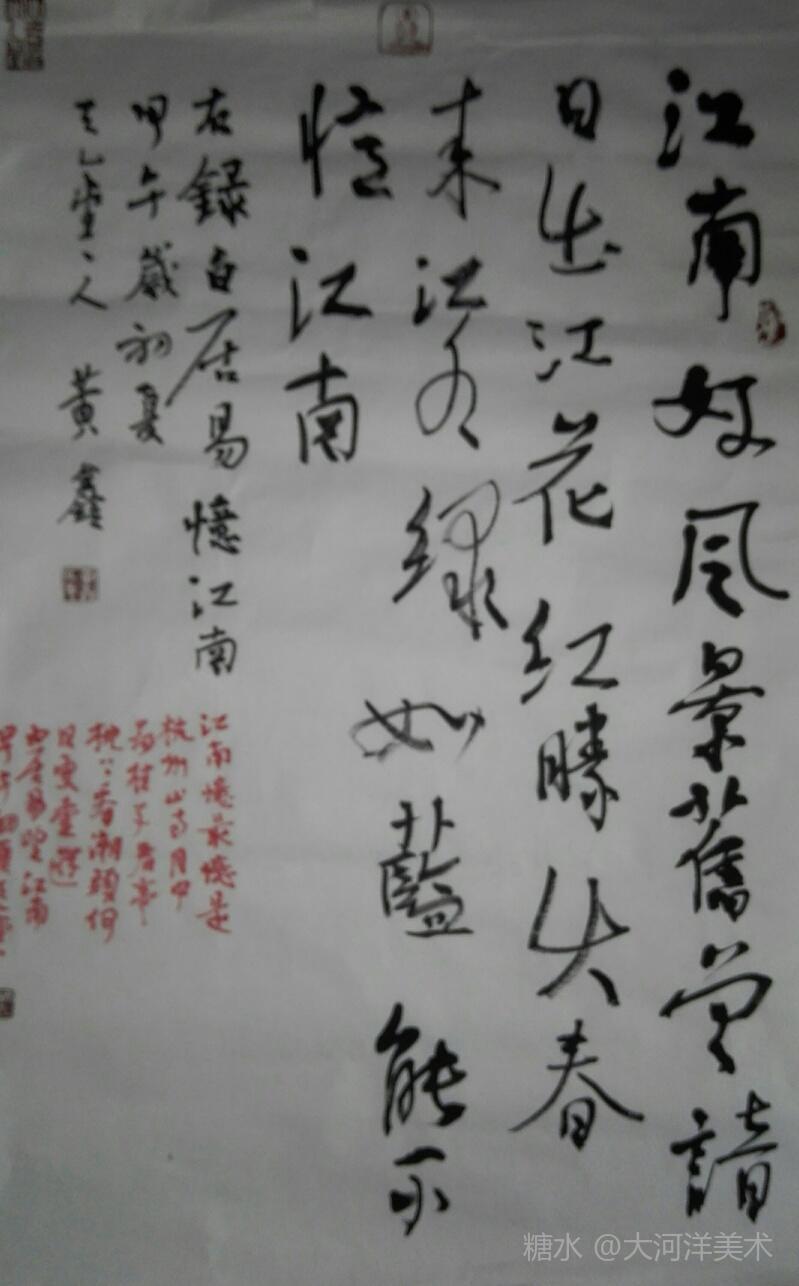 江南好风景舊曾諳
日出江花红勝火春
来江水绿如藍能不
憶江南
右録白居易憶江南
甲午歲初夏
天乙堂人 黄鑫
江南憶最憶是
杭州山寺月中
尋桂子君亭
枕上看潮頭何
日更重遊
白居易望江南
甲午初夏
糖水 @大河洋美术